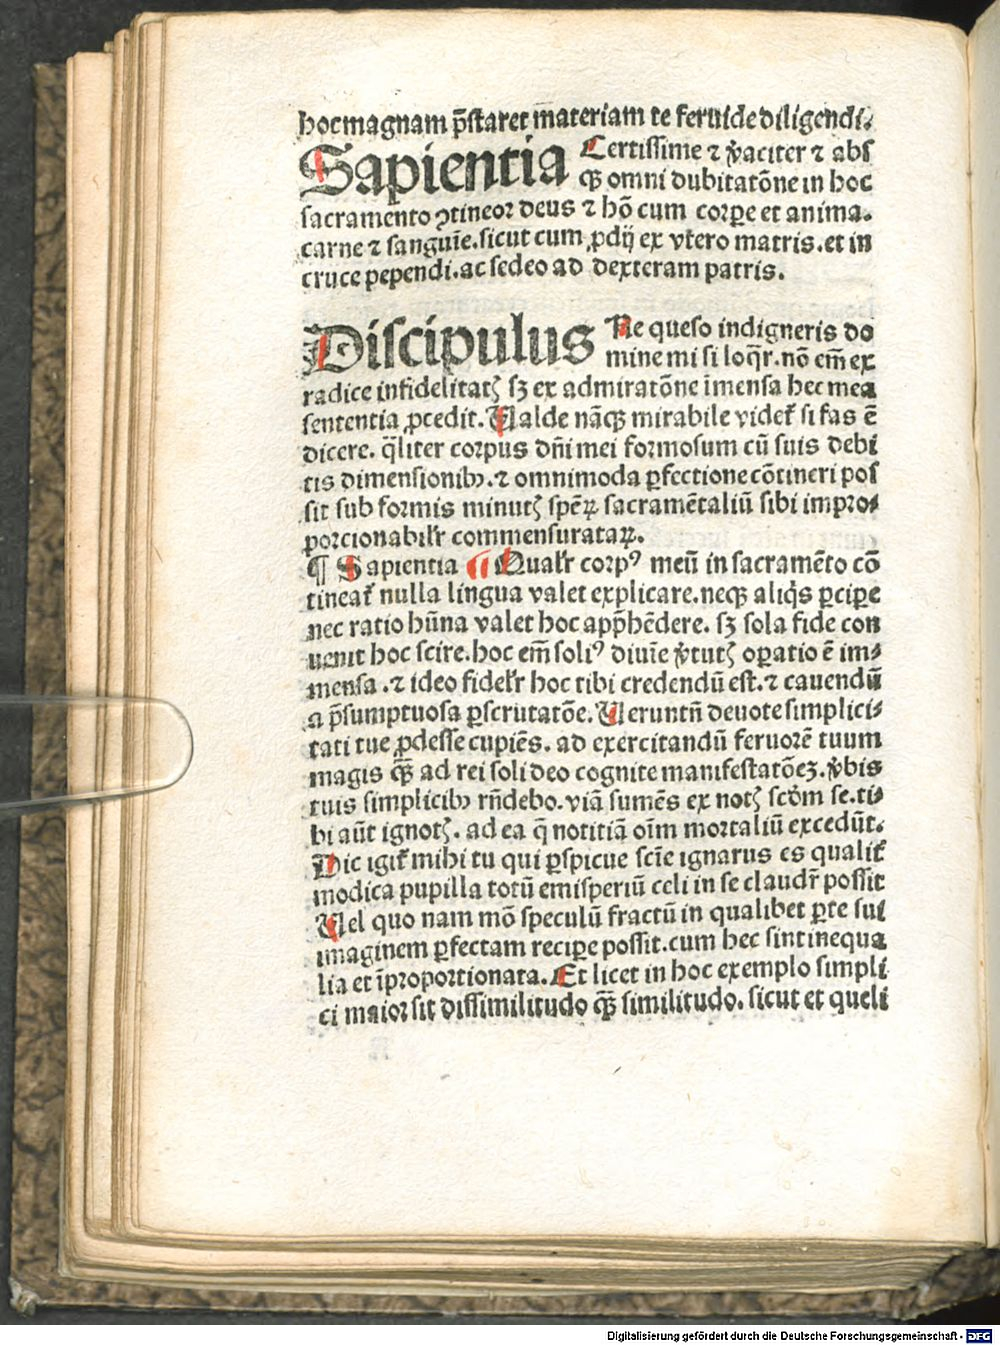 hoc magnam p̄staret materiam te feruide diligendi.
Sapientia Certissime ⁊ v̓aciter ⁊ abs
qꝫ omni dubitatōne in hoc
sacramento ꝯtineor deus ⁊ hō cum corꝑe et anima.
carne ⁊ sanguīe. sicut cum ꝓdij ex vt̓ero matris. et in
cruce pependi. ac sedeo ad dexteram patris.
Discipulus Ne queso indigneris do
mine mi si loq̄r. nō em̄ ex
radice infidelitatꝭ sꝫ ex admiratōne īmensa hec mea
sententia ꝓcedit. Valde nāqꝫ mirabile videt᷑ si fas ē
dicere. q̄liter corpus dn̄i mei formosum cū suis debi
tis dimensionibꝫ. ⁊ omnimoda ꝑfectione cōtineri pos
sit sub formis minutꝭ spēꝝ sacramētaliū sibi impro⸗
porcionabilr̄ commensurataꝝ.
¶ Sapientia ¶ Qualr̄ corpꝰ meū in sacramēto cō
tineat᷑ nulla lingua valet explicare. neqꝫ aliq̓s ꝑciꝑe
nec ratio hūna valet hoc app̄hēdere. sꝫ sola fide con
uenit hoc scire. hoc em̄ soliꝰ diuīe v̓tutꝭ oꝑatio ē im⸗
mensa. ⁊ ideo fidelr̄ hoc tibi credendū est. ⁊ cauendū
a p̄sumptuosa ꝑscrutatōe. Veruntn̄ deuote simplici⸗
tati tue ꝓdesse cupiēs. ad exercitandū feruorē tuum
magis qꝫ̄ ad rei soli deo cognite manifestatōeꝫ. v̓bis
tuis simplicibꝫ rn̄debo. viā sumēs ex notꝭ scd̓m se. ti⸗
bi aūt ignotꝭ. ad ea q̄ notitiā oīm mortaliū excedūt.
Dic igit᷑ mihi tu qui ꝑspicue scīe ignarus es qualit᷑
modica pupilla totū emisperiū celi in se claudr̄ possit
Vel quo nam mō speculū fractū in qualibet ꝑte sui
imaginem ꝑfectam reciꝑe possit. cum hec sint inequa
lia et īproportionata. Et licet in hoc exemplo simpli
ci maior sit dissimilitudo qꝫ̄ similitudo. sicut et queli
Digitalisierung gefördert durch die Deutsche Forschungsgemeinschaft - DFG